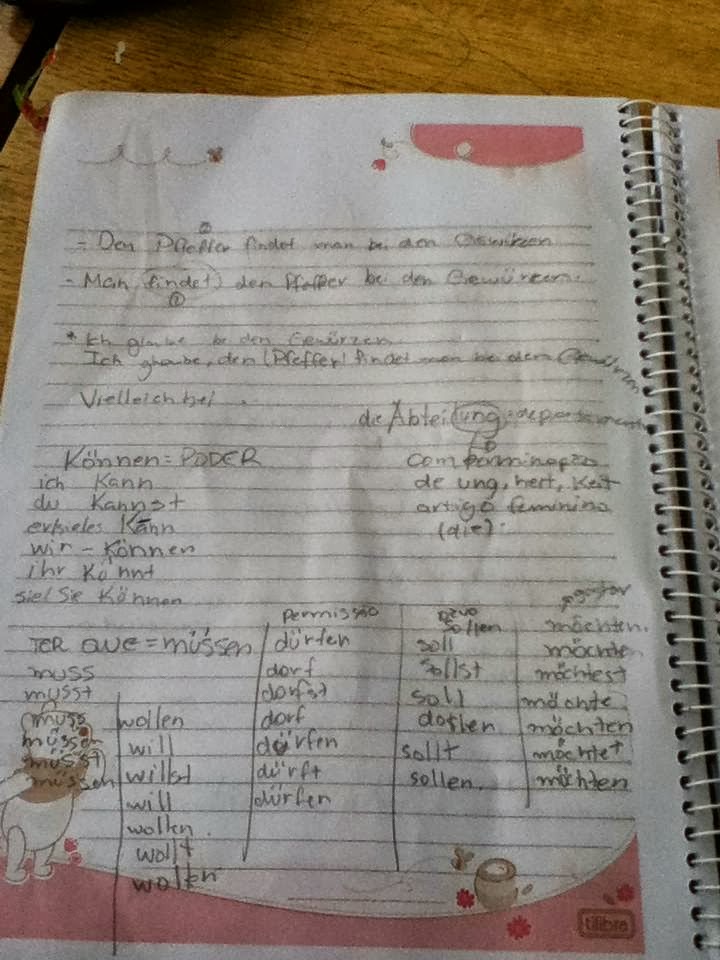 ②
- Den Pfeffer findet man bei den Gewürzen
- Man findet den Pfeffer bei den Gewürzen.
①
* Ich glaube be den Gewürzen
Ich glaube, den (Pfeffer) findet man bei den Gewürzen
Vielleich bei .
die Abteilung = departamento
Können = PODER
ich Kann
du Kannst
er/sie/es Kann
wir - Können
ihr Könnt
sie/Sie Können
de ung, heit, Keit
artigo feminino
(die).
TER QUE = müssen
muss
musst
muss
müssen
müsst
müssen
wollen
will
willst
will
wollen.
wollt
wollen
Permissão
dürfen
dorf
dorfst
dorf
dürfen
dürft
dürfen
Devo
sollen
soll
sollst
soll
sollt
sollen.
gostar
möchten.
möchte
möchtest
möchte
möchten
möchtet
möchten
tilibra